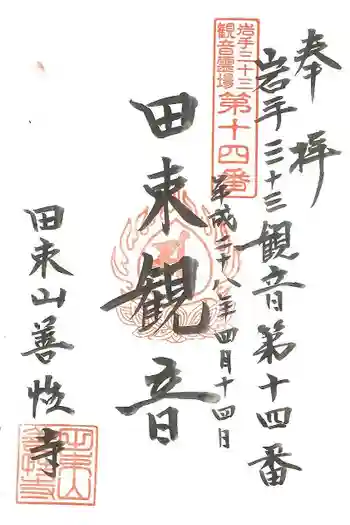 奉拝
岩手三十三観音第十四番
岩手三十三
観音霊場
第十四番
平成二十八年四月十四日
田束観音
田束山善恢寺